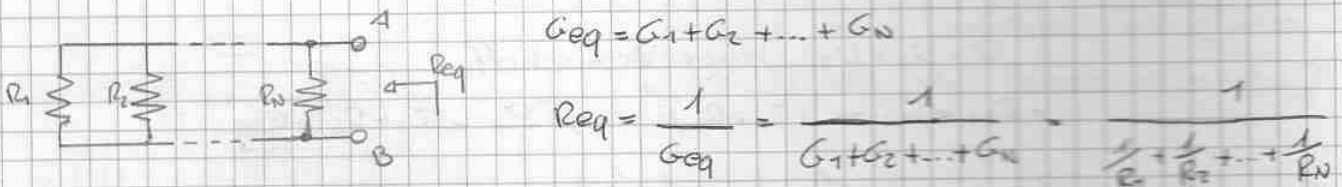 A
R1
R2
RN
Req
B
Geq = G1+G2 +...+ GN
Req = 1/Geq = 1/(G1+G2+...+GN) = 1/(1/R1 + 1/R2 +...+ 1/RN)